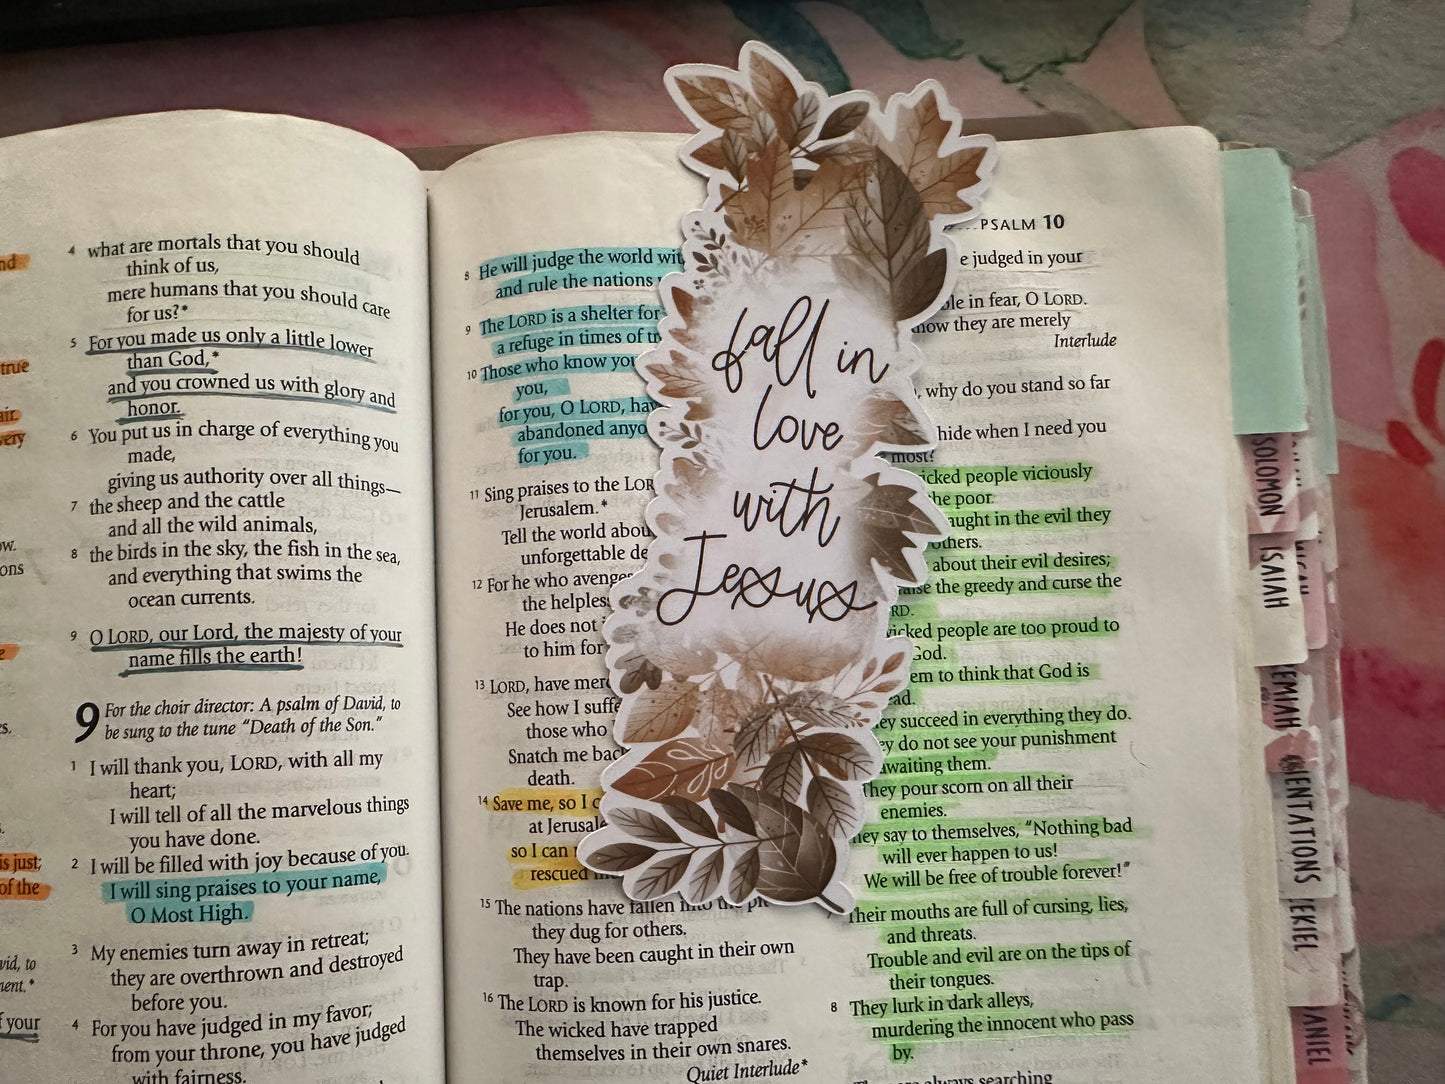 nd
true
air.
very
ow.
ons
e
s.
s.
is just;
of the
vid, to
ment.*
f your
4 what are mortals that you should
think of us,
mere humans that you should care
for us?*
5 For you made us only a little lower
than God,*
and you crowned us with glory and
honor.
6 You put us in charge of everything you
made,
giving us authority over all things—
7 the sheep and the cattle
and all the wild animals,
8 the birds in the sky, the fish in the sea,
and everything that swims the
ocean currents.
9 O LORD, our Lord, the majesty of your
name fills the earth!
9 For the choir director: A psalm of David, to
be sung to the tune “Death of the Son.”
1 I will thank you, LORD, with all my
heart;
I will tell of all the marvelous things
you have done.
2 I will be filled with joy because of you.
I will sing praises to your name,
O Most High.
3 My enemies turn away in retreat;
they are overthrown and destroyed
before you.
4 For you have judged in my favor;
from your throne, you have judged
with fairness.
8 He will judge the world wit
and rule the nations
9 The LORD is a shelter for
a refuge in times of tr
10 Those who know you
you,
for you, O LORD, hav
abandoned anyo
for you.
11 Sing praises to the LOR
Jerusalem.*
Tell the world abou
unforgettable de
12 For he who avenge
the helples
He does not
to him for
13 LORD, have mer
See how I suffe
those who
Snatch me bac
death.
14 Save me, so I c
at Jerusal
so I can
rescued me
15 The nations have fallen into the pi
they dug for others.
They have been caught in their own
trap.
16 The LORD is known for his justice.
The wicked have trapped
themselves in their own snares.
Quiet Interlude*
fall in
love
with
Jesus
PSALM 10
e judged in your
ble in fear, O LORD.
now they are merely
Interlude
, why do you stand so far
hide when I need you
most?
icked people viciously
the poor.
aught in the evil they
others.
about their evil desires;
aise the greedy and curse the
RD.
wicked people are too proud to
God.
em to think that God is
ead.
ey succeed in everything they do.
ey do not see your punishment
awaiting them.
They pour scorn on all their
enemies.
hey say to themselves, “Nothing bad
will ever happen to us!
We will be free of trouble forever!”
7 Their mouths are full of cursing, lies,
and threats.
Trouble and evil are on the tips of
their tongues.
8 They lurk in dark alleys,
murdering the innocent who pass
by.
always searching
SOLOMON
ISAIAH
EMIAH
ENTATIONS
EKIEL
ANIEL